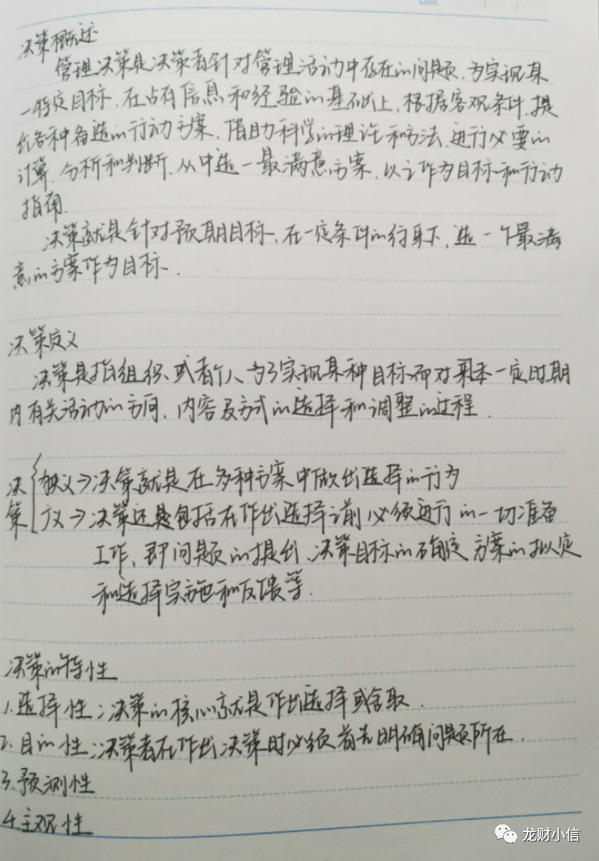 Date
决策概述
管理决策是决策者针对管理活动中存在的问题、为实现某
一特定目标、在占有信息和经验的基础上、根据客观条件、提
出各种备选的行动方案、借助科学的理论和方法、进行必要的
计算、分析和判断、从中选一最满意方案、以之作为目标和行动
指南.
决策就是针对预期目标、在一定条件的约束下、选一个最满
意的方案作为目标.
决策定义
决策是指组织或者个人为了实现某种目标而对未来一定时期
内有关活动的方向、内容及方式的选择和调整的过程.
决策 狭义→决策就是在多种方案中做出选择的行为
广义→决策还是包括在作出选择之前必须进行的一切准备
工作、即问题的提出、决策目标的确定 方案的拟定
和选择实施和反馈等.
决策的特性
1.选择性:决策的核心就是作出选择或舍取.
2.目的性:决策者在作出决策时必须首先明确问题所在.
3.预测性
4.主观性
龙财小信